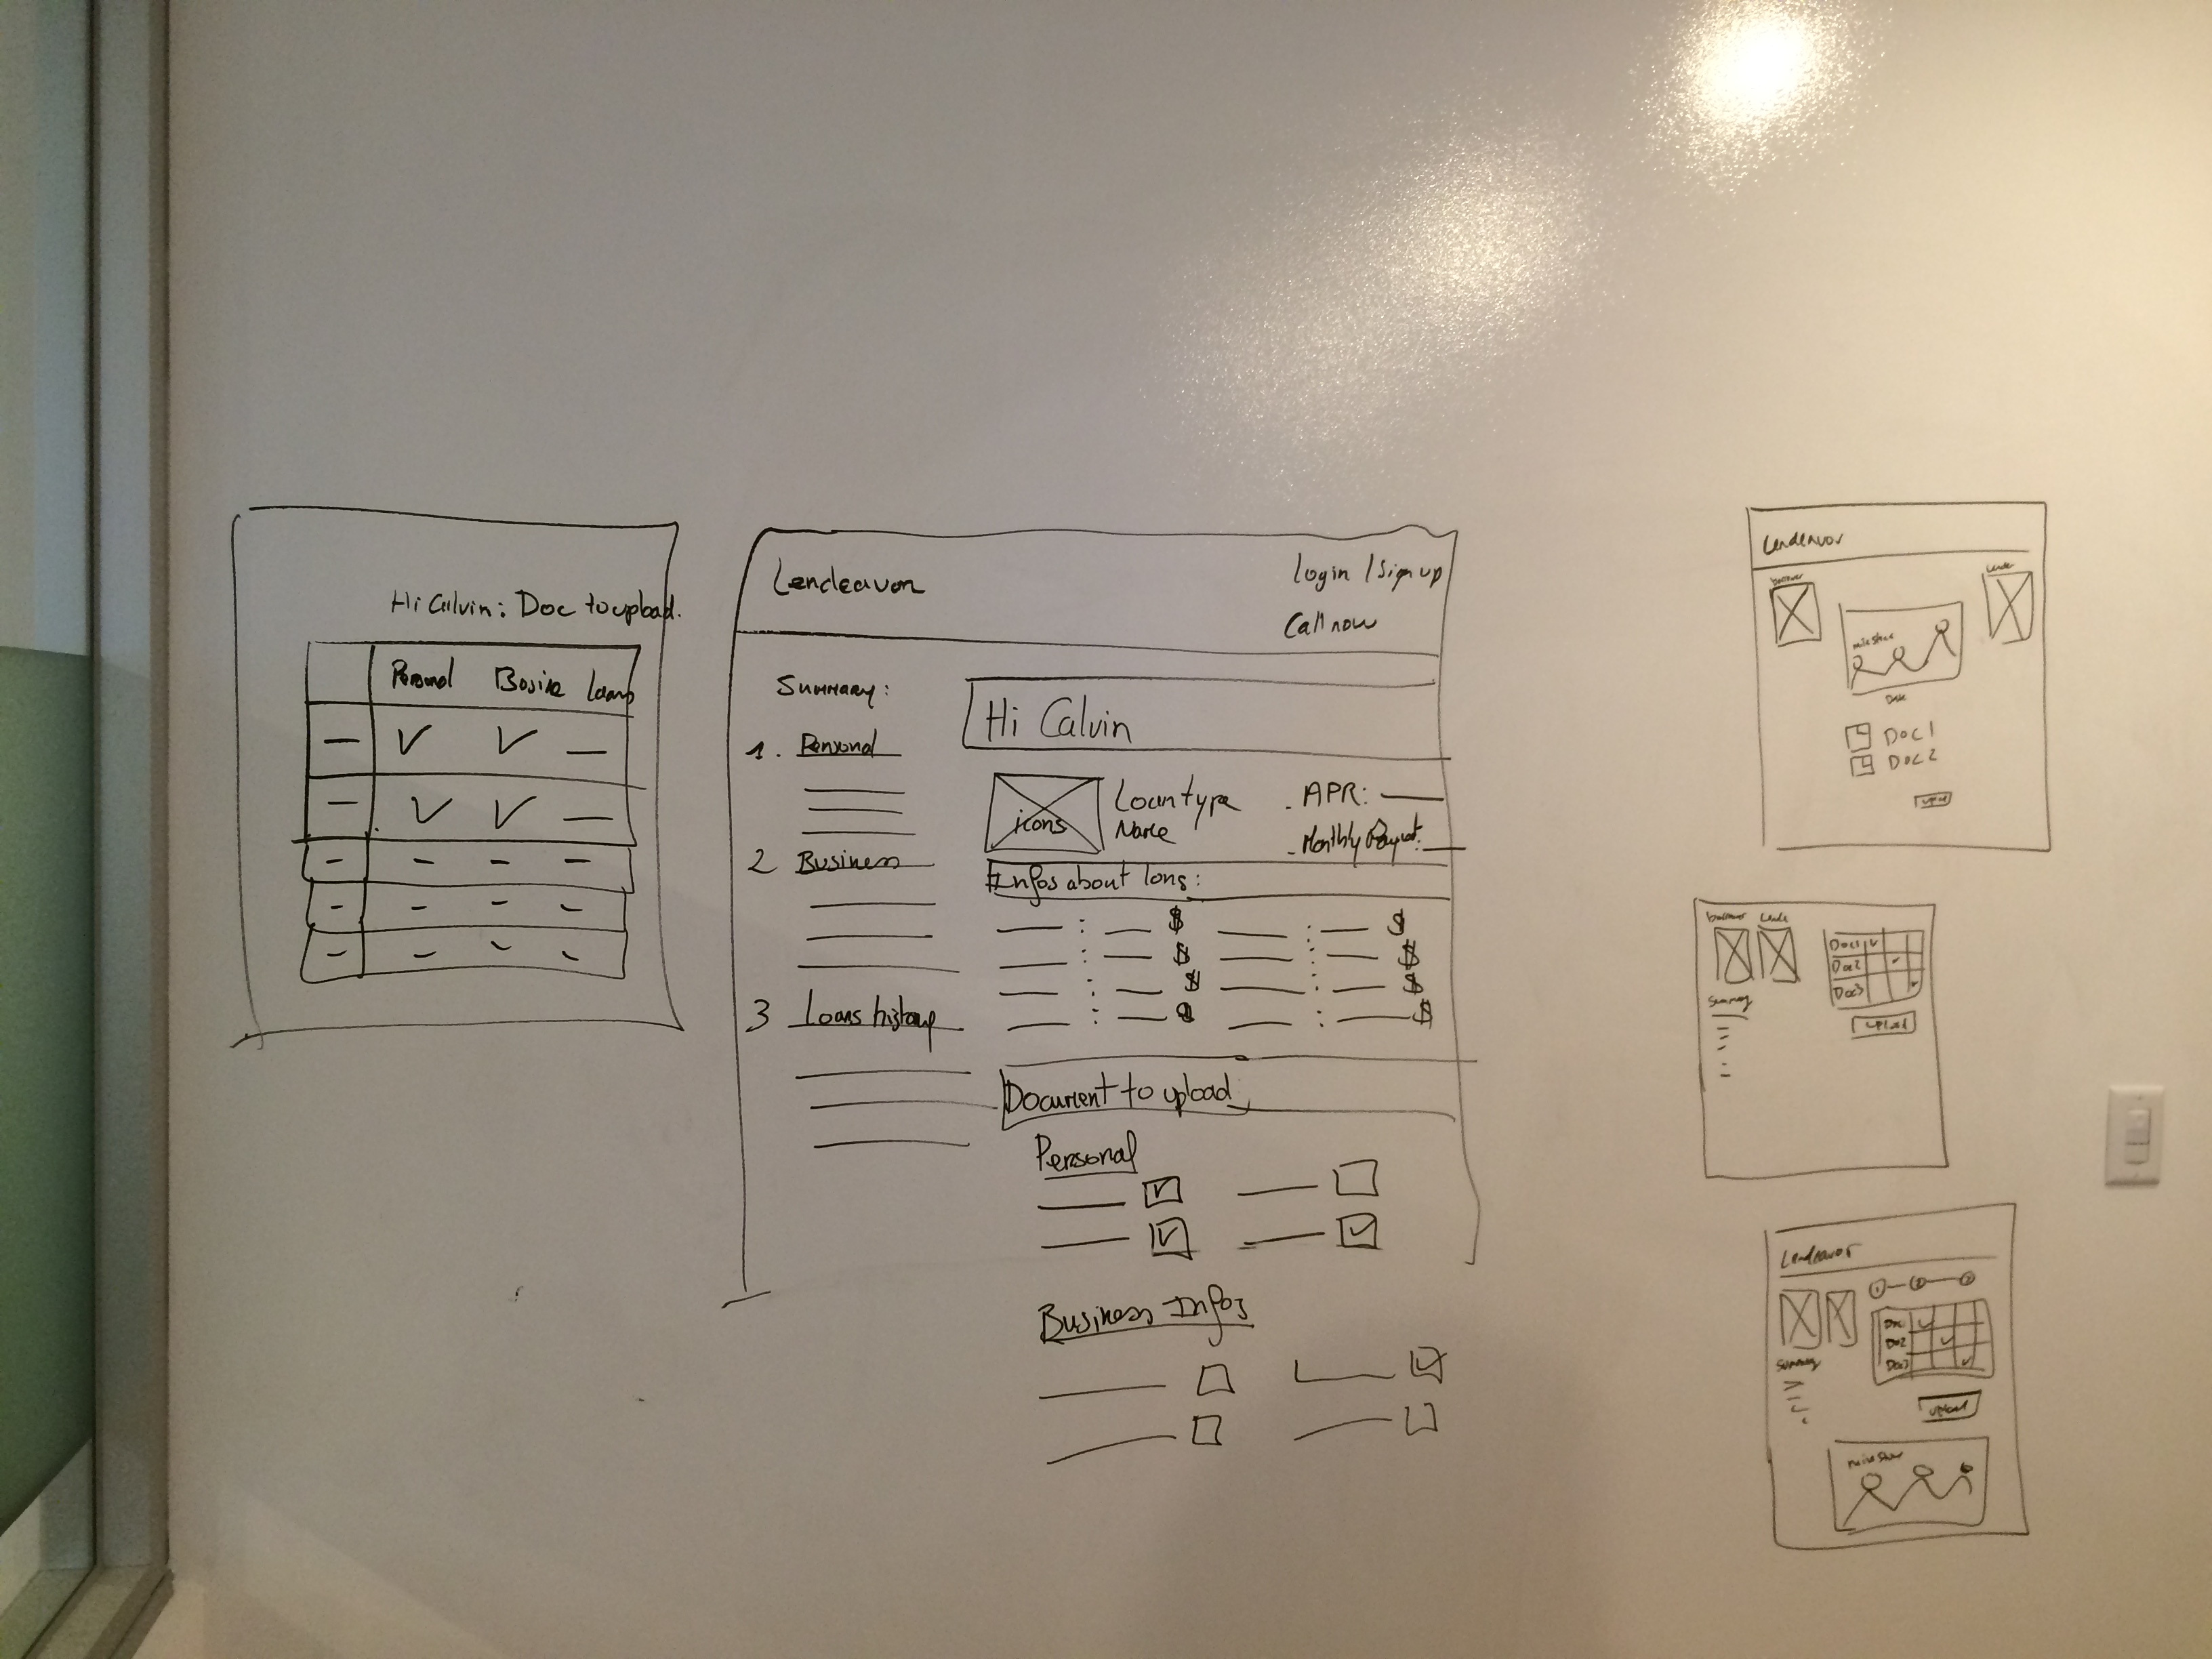 Hi Calvin: Doc to upload.
Personal Busine Loans
Lendeavor
Login / Sign up
Call now
Summary:
1. Personal
2 Business
3 Loans history
Hi Calvin
icons
Loan type
Name
- APR:
- Monthly Paymt:
Infos about lons:
$ $
$ $
$ $
$ $
Document to upload
Personal
Business Infos
Lendeavor
borrower
Lender
Date
Doc 1
Doc 2
borrower Lende
Summary
Doc1
Doc2
Doc3
upload
Lendeavor
1 2 3
Summary
Doc
Doc2
Doc3
upload